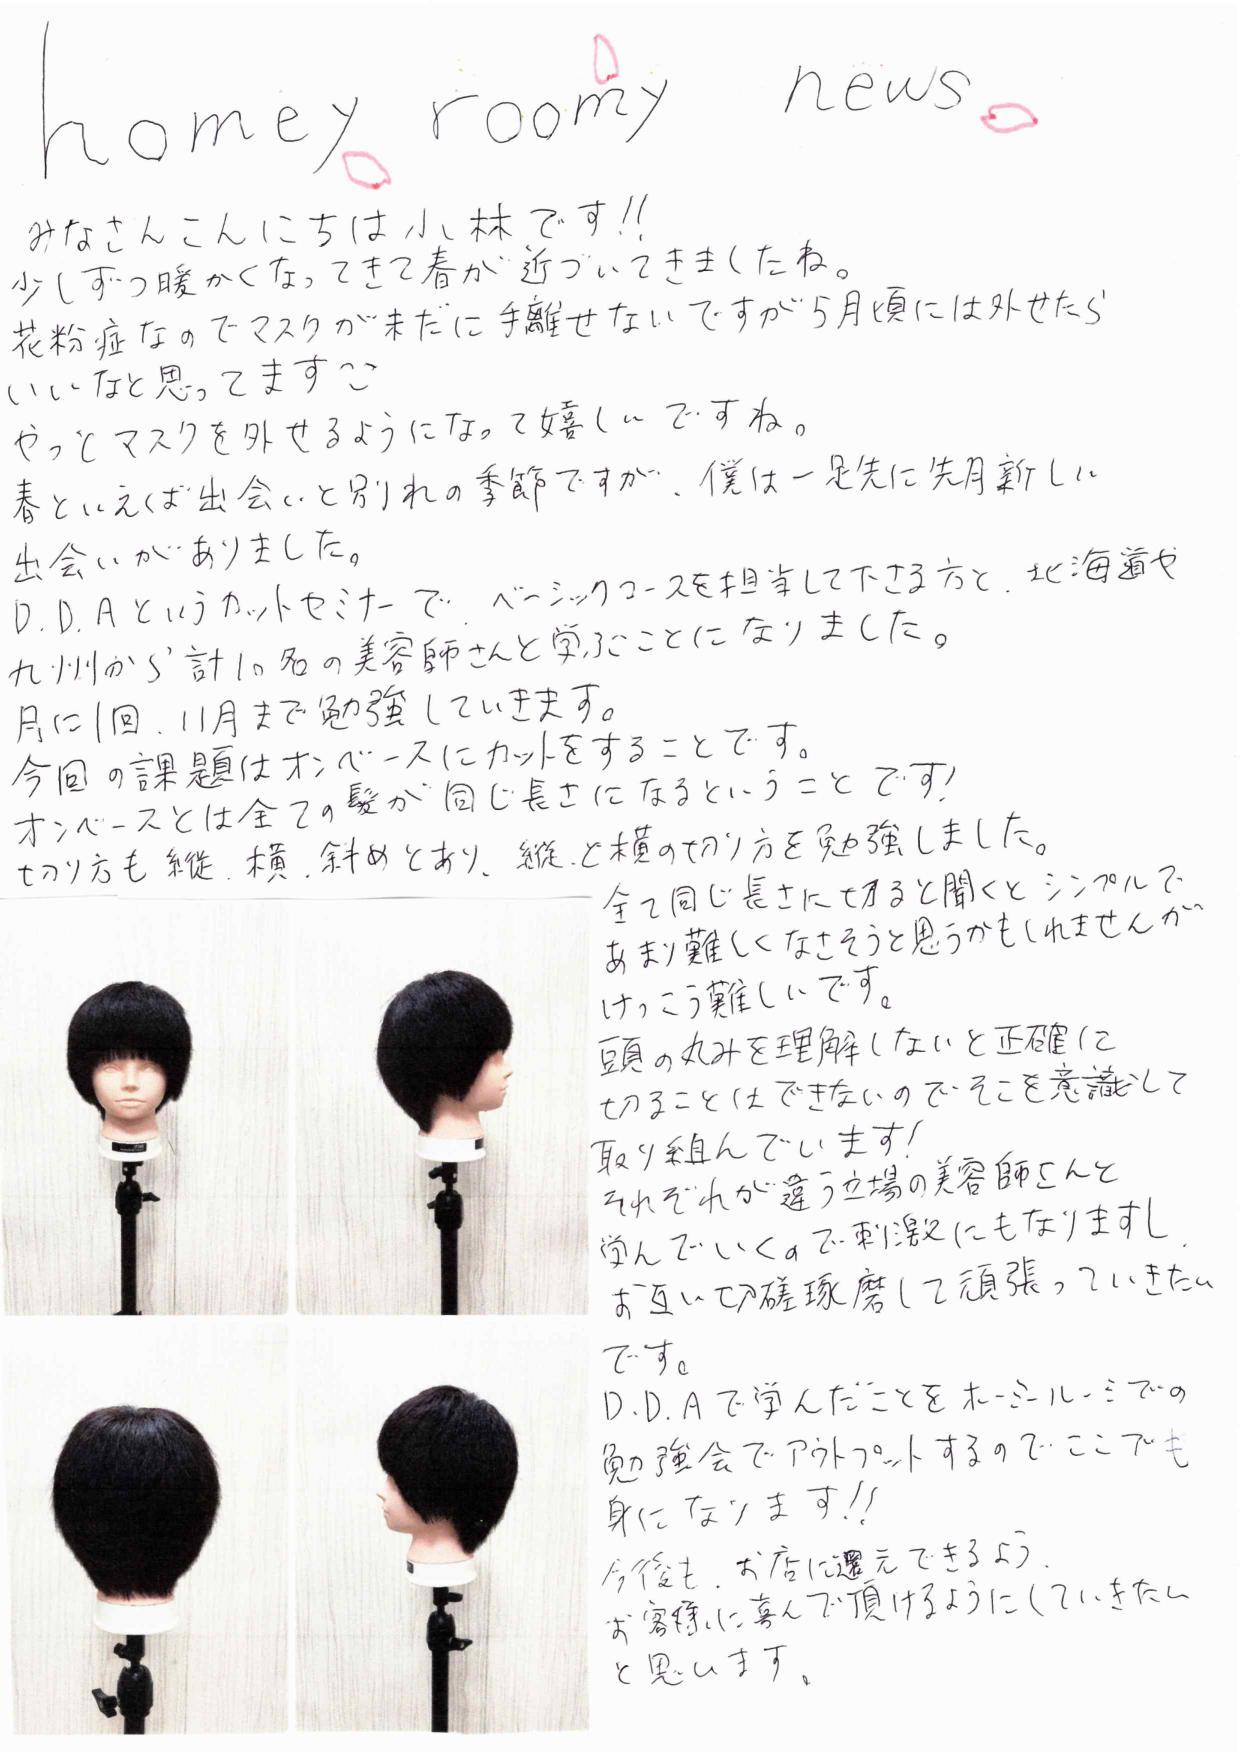 homey roomy news
みなさんこんにちは小林です!!
少しずつ暖かくなってきて春が近づいてきましたね。
花粉症なのでマスクが未だに手離せないですが5月頃には外せたら
いいなと思ってます
やっとマスクを外せるようになって嬉しいですね。
春といえば出会いと別れの季節ですが、僕は一足先に先月新しい
出会いがありました。
D.D.Aというカットセミナーで、ベーシックコースを担当して下さる方と、北海道や
九州から計10名の美容師さんと学ぶことになりました。
月に1回、11月まで勉強していきます。
今回の課題はオンベースにカットをすることです。
オンベースとは全ての髪が同じ長さになるということです!
切り方も縦、横、斜めとあり、縦と横の切り方を勉強しました。
全て同じ長さに切ると聞くとシンプルで
あまり難しくなさそうと思うかもしれませんが
けっこう難しいです。
頭の丸みを理解しないと正確に
切ることはできないのでそこを意識して
取り組んでいます!
それぞれが違う立場の美容師さんと
学んでいくので刺激にもなりますし、
お互い切磋琢磨して頑張っていきたい
です。
D.D.Aで学んだことをホーミールーミでの
勉強会でアウトプットするのでここでも
身になります!!
今後も、お店に還元できるよう、
お客様に喜んで頂けるようにしていきたい
と思います。